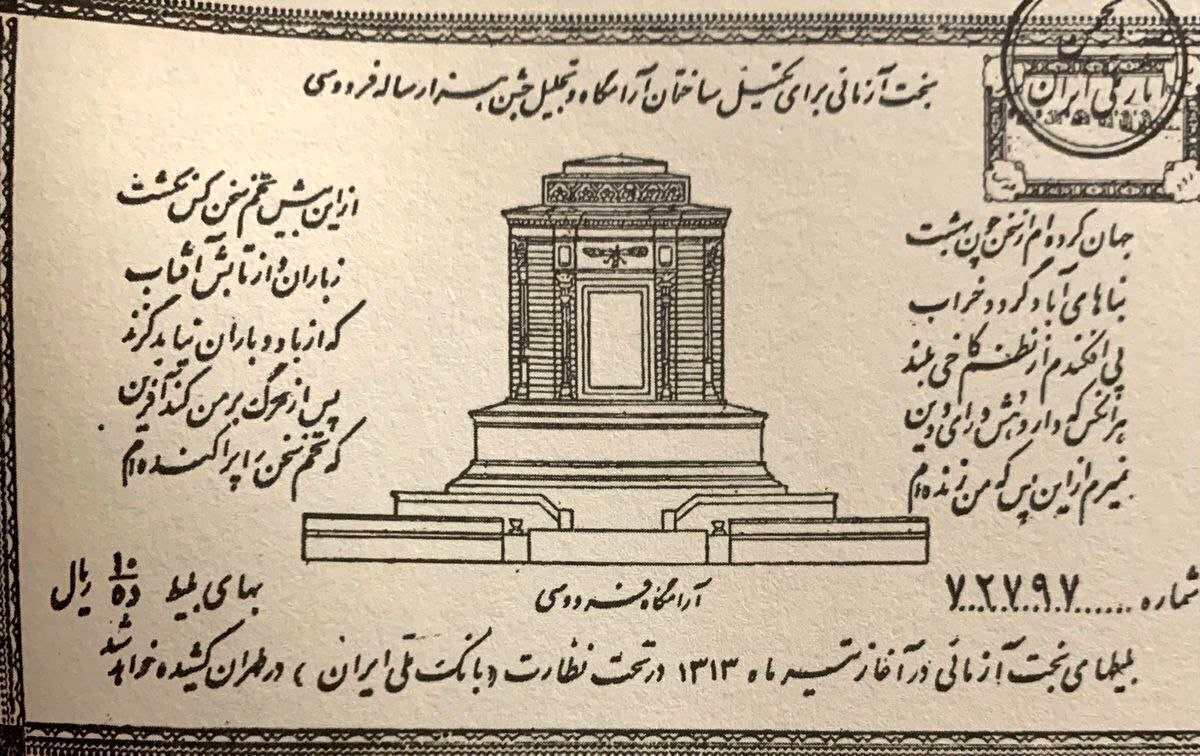 بخت آزمائی برای تکمیل ساختمان آرامگاه و تجلیل جشن هزار ساله فردوسی
انجمن
آثار ملی ایران
جهان کرده ام از سخن چون بهشت از این بیش تخم سخن کس نکشت
بناهای آباد گردد خراب ز باران و از تابش آفتاب
پی افکندم از نظم کاخی بلند که از باد و باران نیابد گزند
هر آنکس که دارد هش و رای و دین پس از مرگ بر من کند آفرین
نمیرم از این پس که من زنده ام که تخم سخن را پراکنده ام
شماره ......۷۲۷۹۷ آرامگاه فردوسی بهای بلیط ۱۰ ده ریال
بلیطهای بخت آزمائی در آغاز تیر ماه ۱۳۱۳ در تحت نظارت (بانک ملی ایران) در طهران کشیده خواهد شد